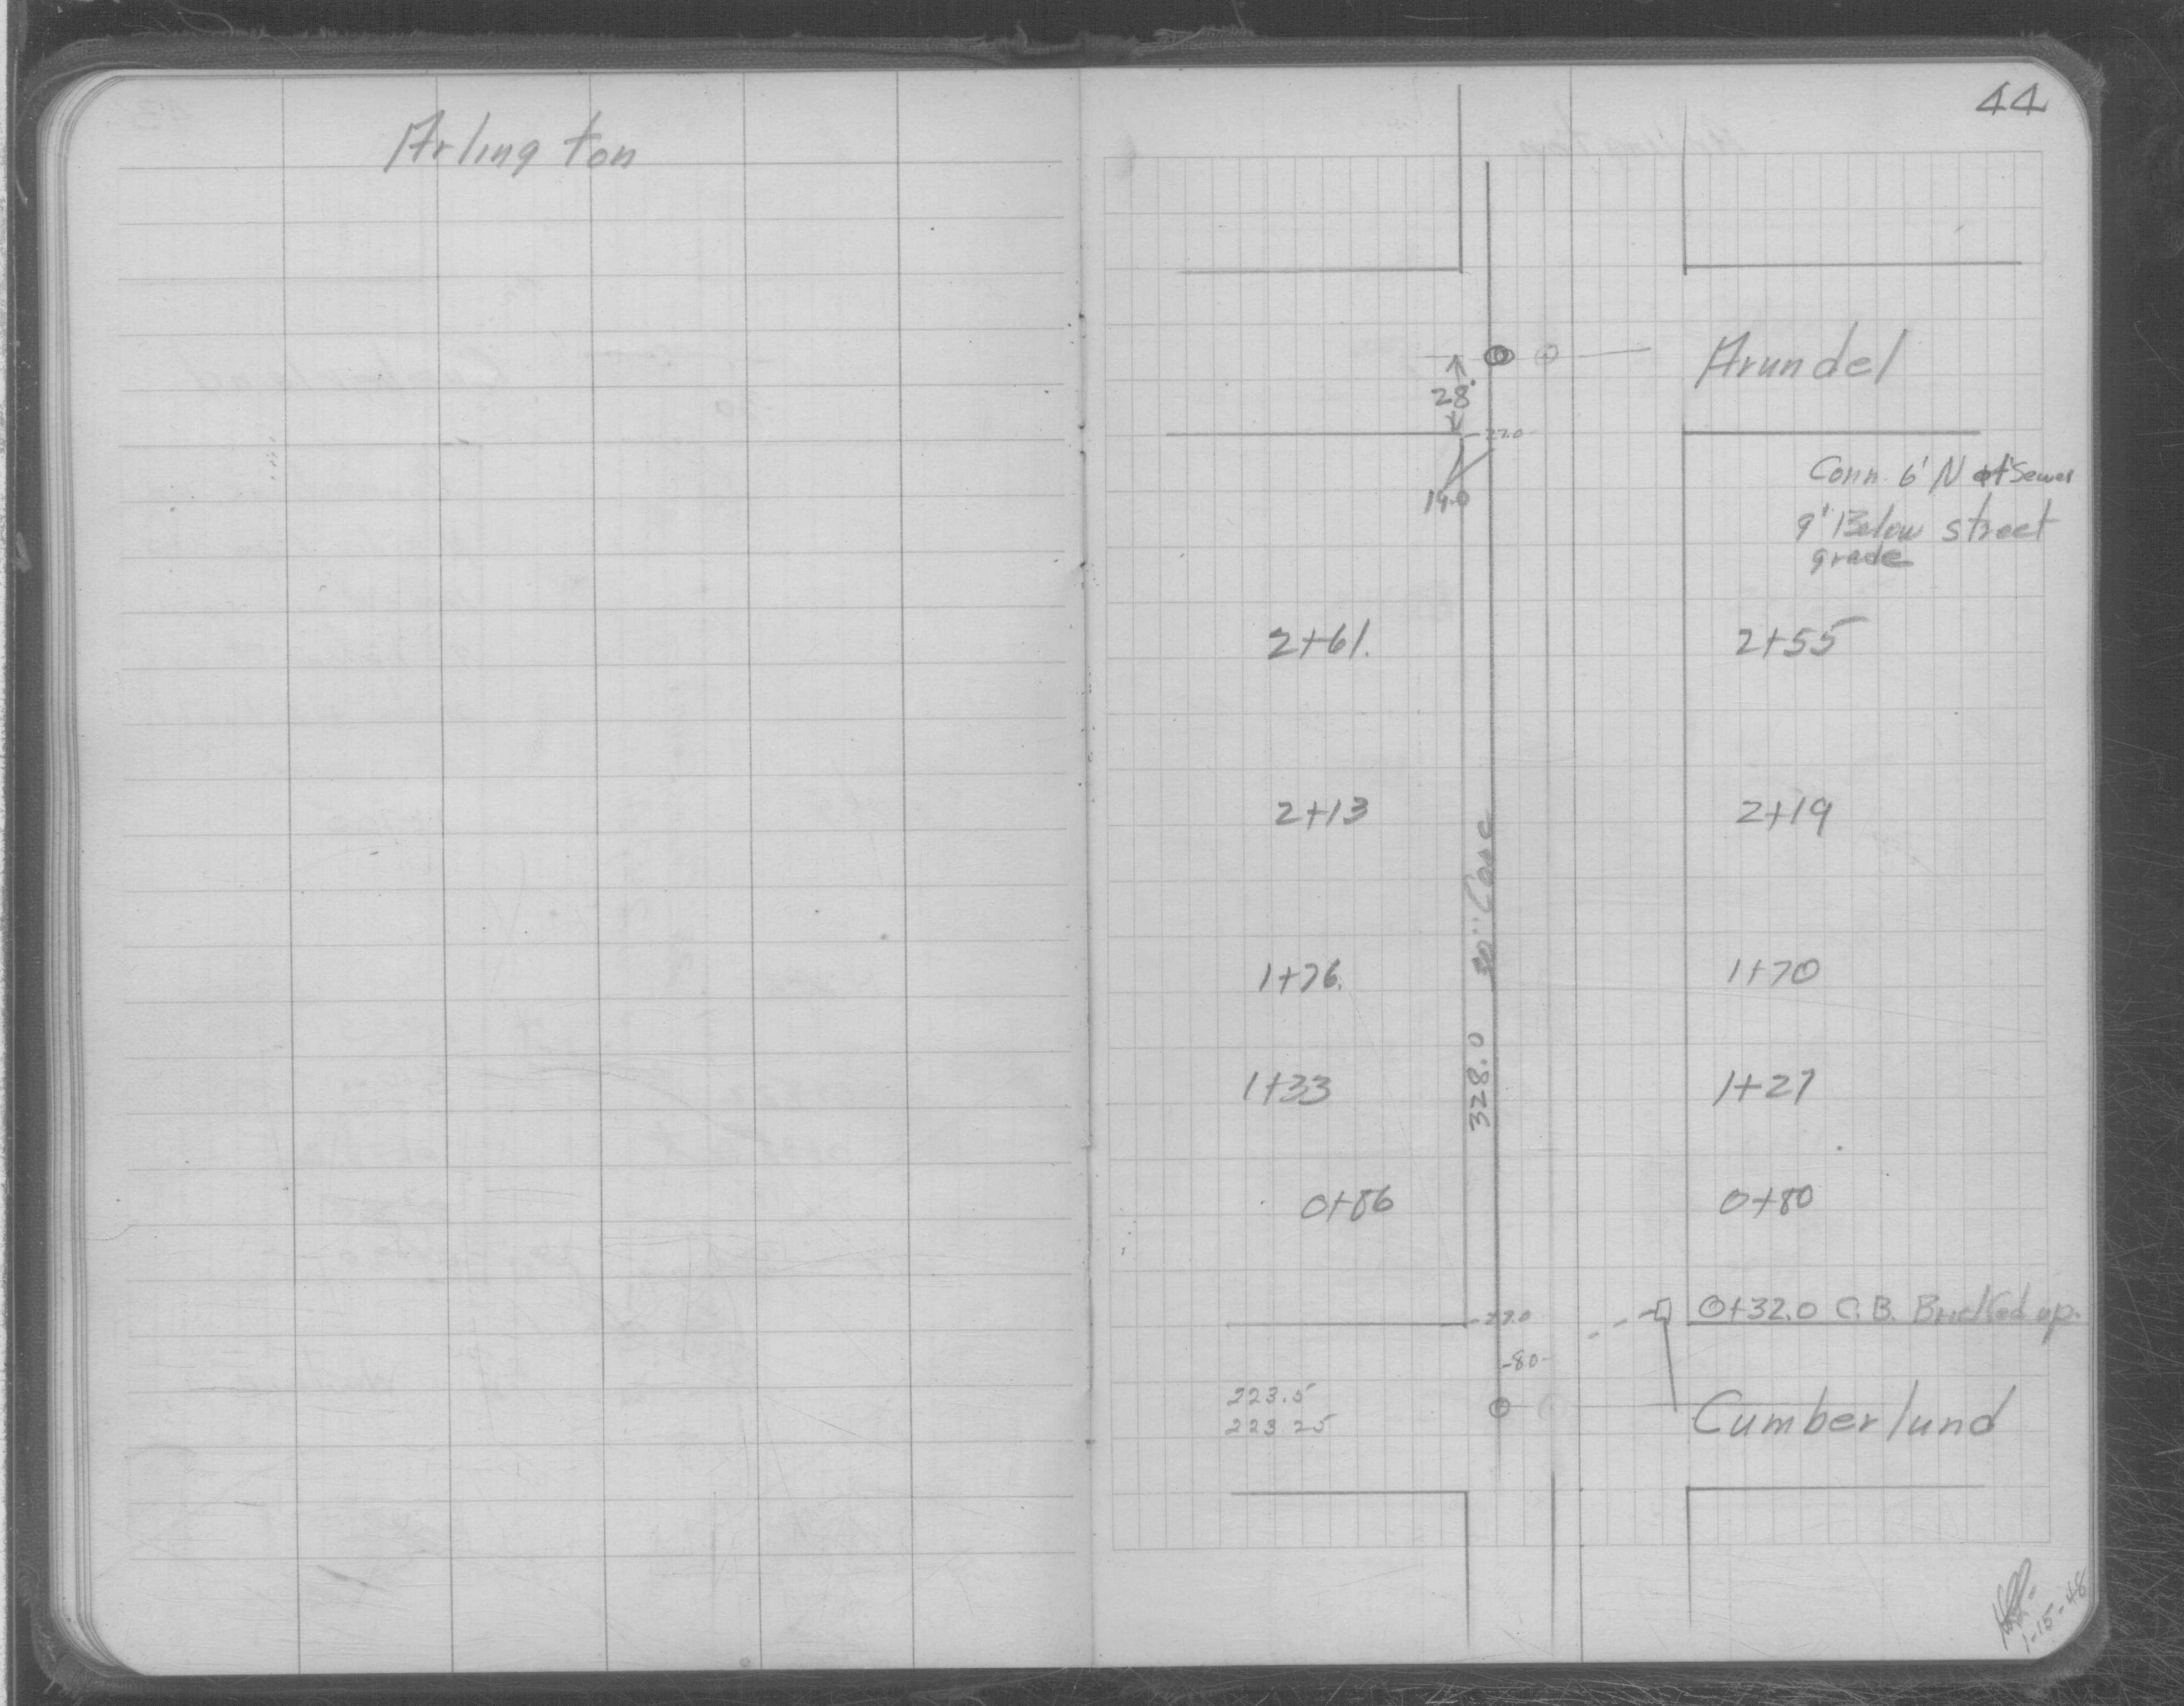 Arlington
44
Arundel
28'
-27.0-
14.0
Conn. 6' N of Sewer
9' Below street
grade
2+61.
2+55
2+13
2+19
Conc
1+76.
1+70
328.0
1+33
1+27
0+86
0+80
0+32.0 C.B. Bricked up.
-27.0
-8.0-
223.5
223 25
Cumberlund
1-15-48